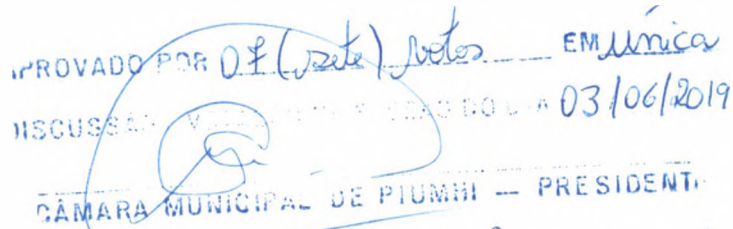 APROVADO POR 07 (sete) votos EM única
DISCUSSÃO V DO DIA 03/06/2019
CÂMARA MUNICIPAL DE PIUMHI — PRESIDENTE